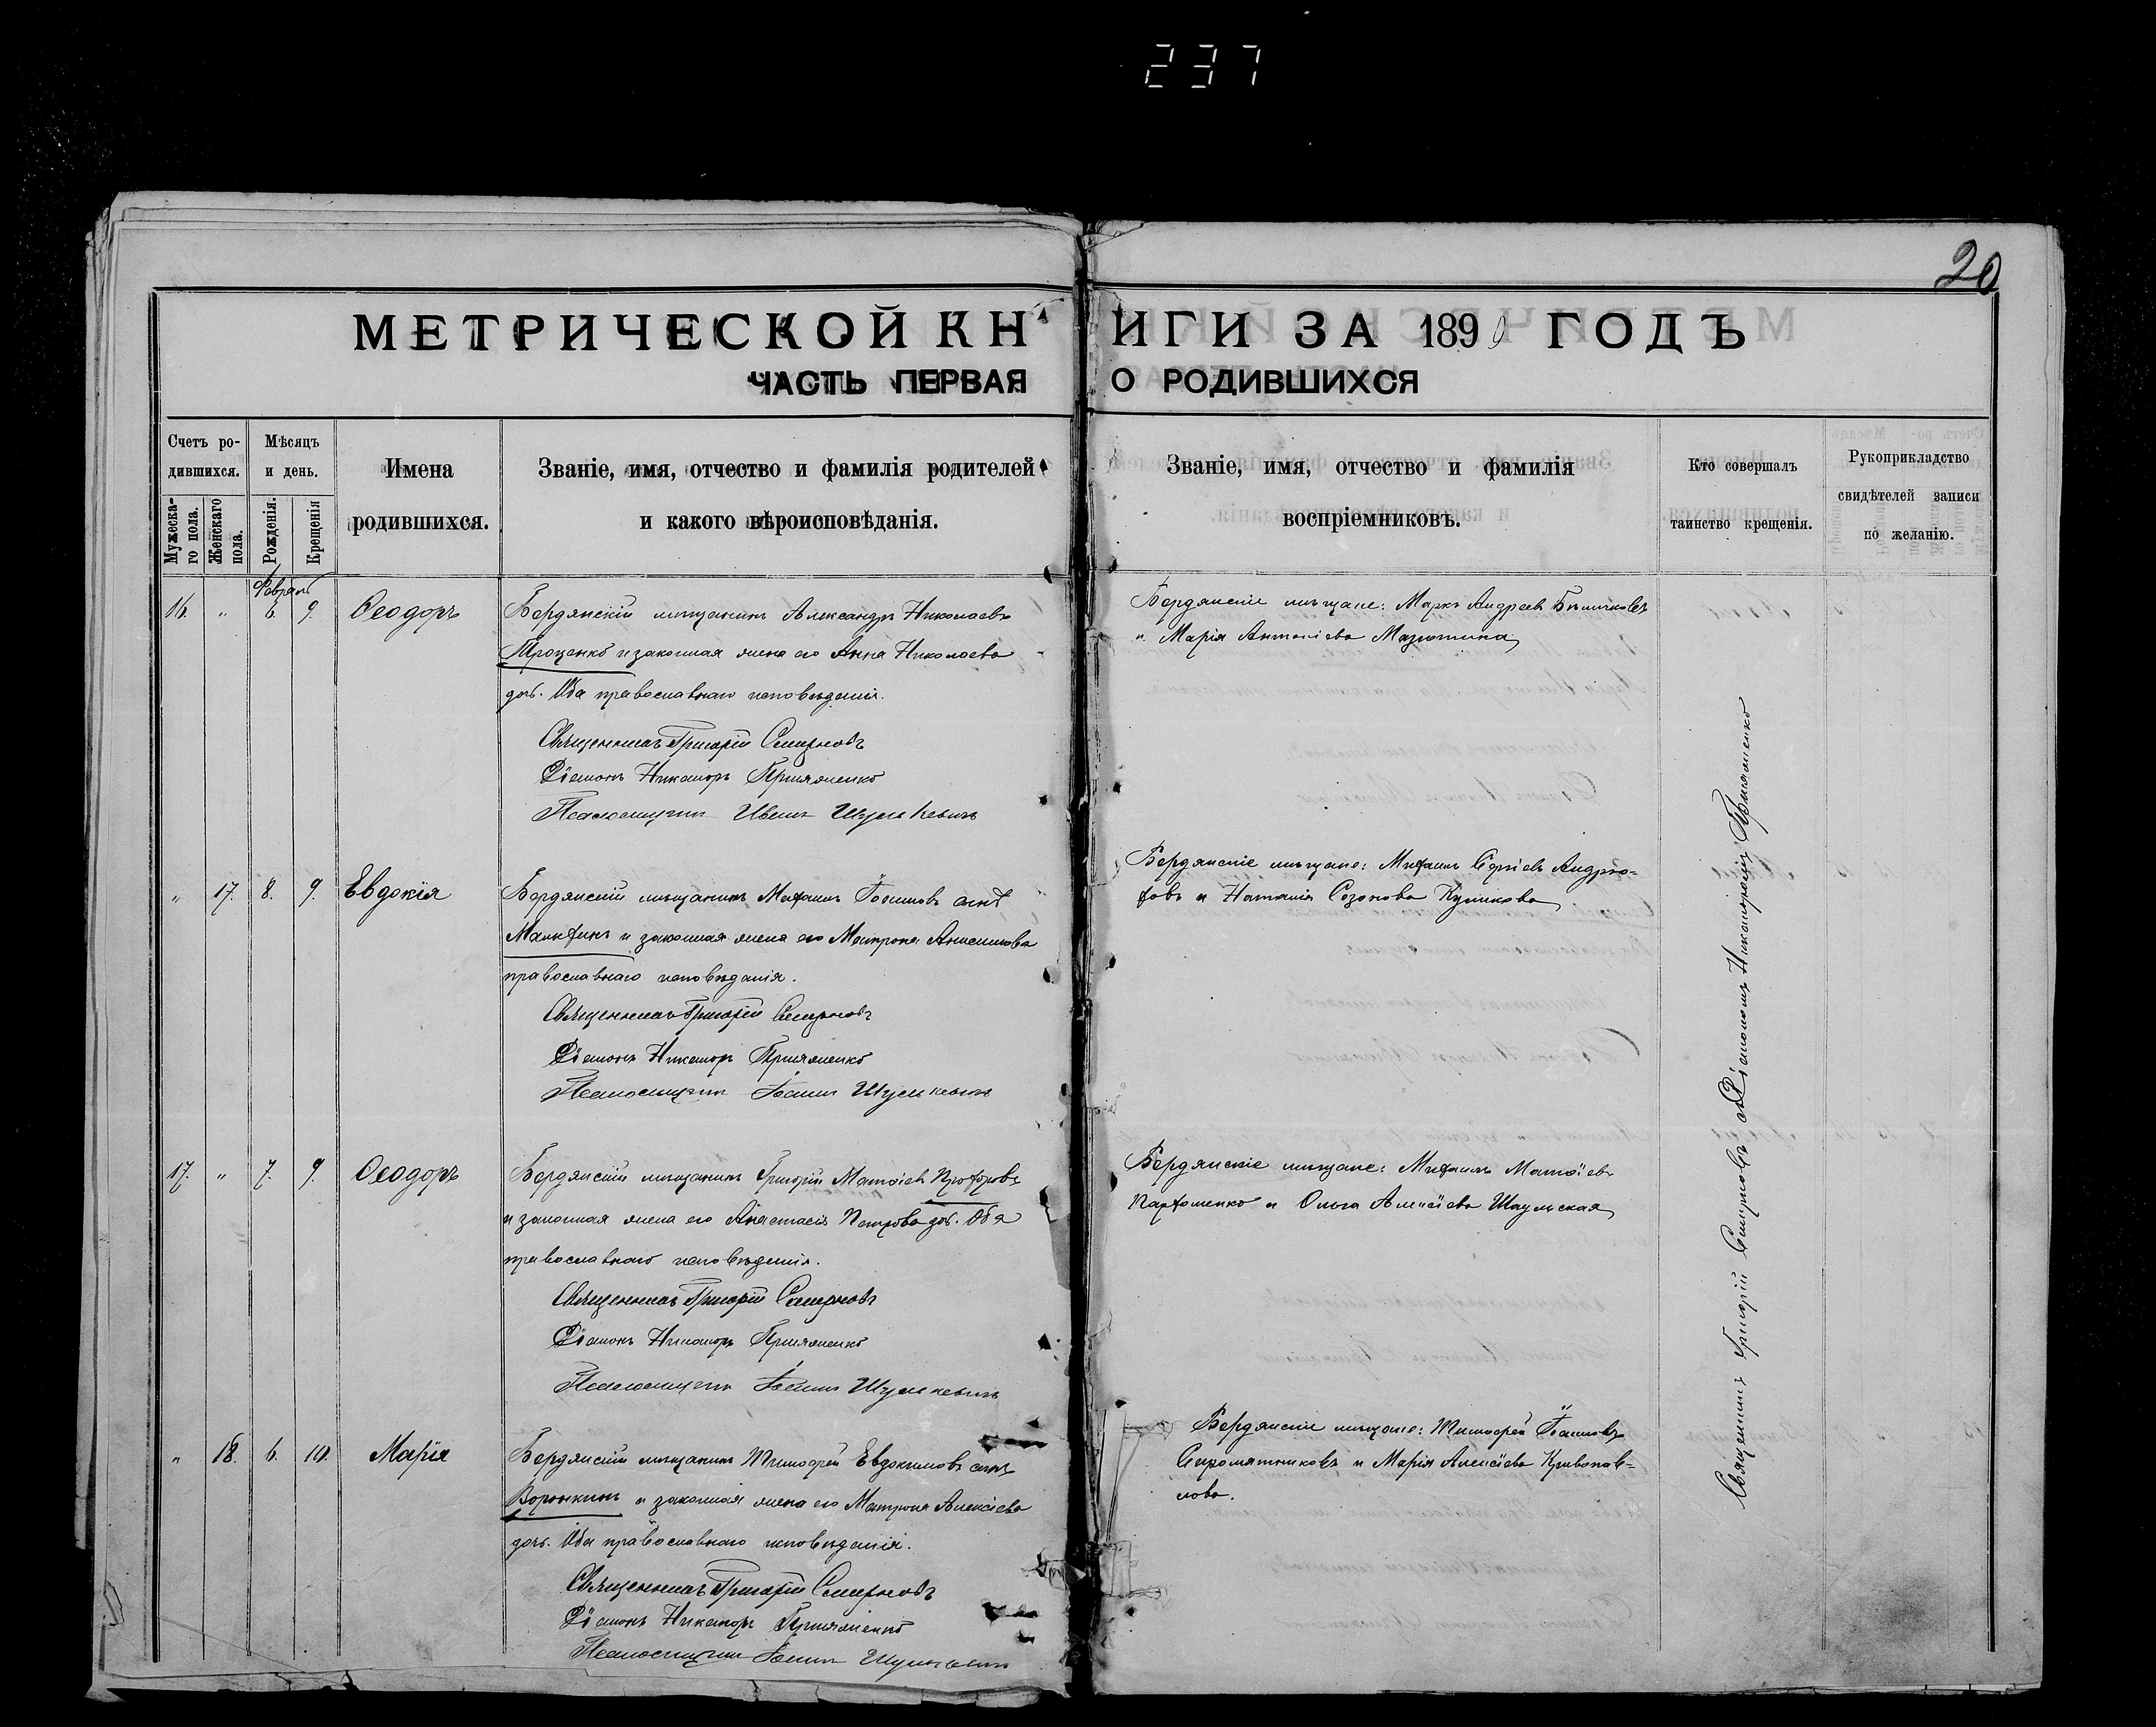 237
20
МЕТРИЧЕСКОЙ КНИГИ ЗА 1899 ГОДЪ
ЧАСТЬ ПЕРВАЯ О РОДИВШИХСЯ
Счетъ ро-
дившихся.
Мужеска-
го пола.
Женскаго
пола.
Мѣсяцъ
и день.
Рожденія.
Крещенія
Имена
родившихся.
Званіе, имя, отчество и фамилія родителей
и какого вѣроисповѣданія.
Званіе, имя, отчество и фамилія
воспріемниковъ.
Кто совершалъ
таинство крещенія.
Рукоприкладство
свидѣтелей записи
по желанію.
Февраль
16. " 6. 9. Ѳеодоръ
Бердянскій мѣщанинъ Александръ Николаевъ
Проценко и законная жена его Анна Николаева
доч. Оба православнаго исповѣданія.
Священникъ Григорій Смирновъ
Діаконъ Никаноръ Прияженко
Псаломщикъ Иванъ Шулькевичъ
Бердянскіе мѣщане: Маркъ Андреевъ
и Марія Антоніева
" 17. 8. 9. Евдокія
Бердянскій мѣщанинъ Михаилъ Іоанновъ сынъ
и законная жена его Матрона Анисимова
православнаго исповѣданія.
Священникъ Григорій Смирновъ
Діаконъ Никаноръ Прияженко
Псаломщикъ Іоаннъ Шулькевичъ
Бердянскіе мѣщане: Михаилъ Сергіевъ Андрю-
ховъ и Наталія Созонова Куликова
17. " 7. 9. Ѳеодоръ
Бердянскій мѣщанинъ Григорій Матѳіевъ Прохоровъ
и законная жена его Анастасія Петрова доч. Оба
православнаго исповѣданія.
Священникъ Григорій Смирновъ
Діаконъ Никаноръ Прияженко
Псаломщикъ Іоаннъ Шулькевичъ
Бердянскіе мѣщане: Михаилъ Матѳіевъ
Пархоменко и Ольга Алексіева Шаульская
" 18. 6. 10. Марія
Бердянскій мѣщанинъ Тимоѳей Евдокимовъ сынъ
Воронкинъ и законная жена его Матрона Алексіева
доч. Оба православнаго исповѣданія.
Священникъ Григорій Смирновъ
Діаконъ Никаноръ Прияженко
Псаломщикъ Іоаннъ Шулькевичъ
Бердянскіе мѣщане: Тимоѳей Іоанновъ
Сыромятниковъ и Марія Алексіева Кривопав-
лова.
Священникъ Григорій Смирновъ съ Діакономъ Никаноромъ Прияженко